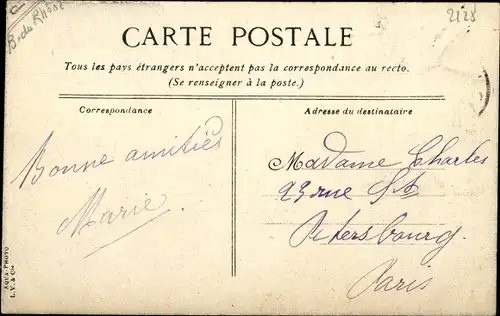 B. du Rhône
2128
CARTE POSTALE
Tous les pays étrangers n'acceptent pas la correspondance au recto.
(Se renseigner à la poste.)
Correspondance
Adresse du destinataire
Bonne amitiés
Marie
Madame Charles
23 rue St
Petersbourg
Paris
AQUA PHOTO
L. V. & Cie